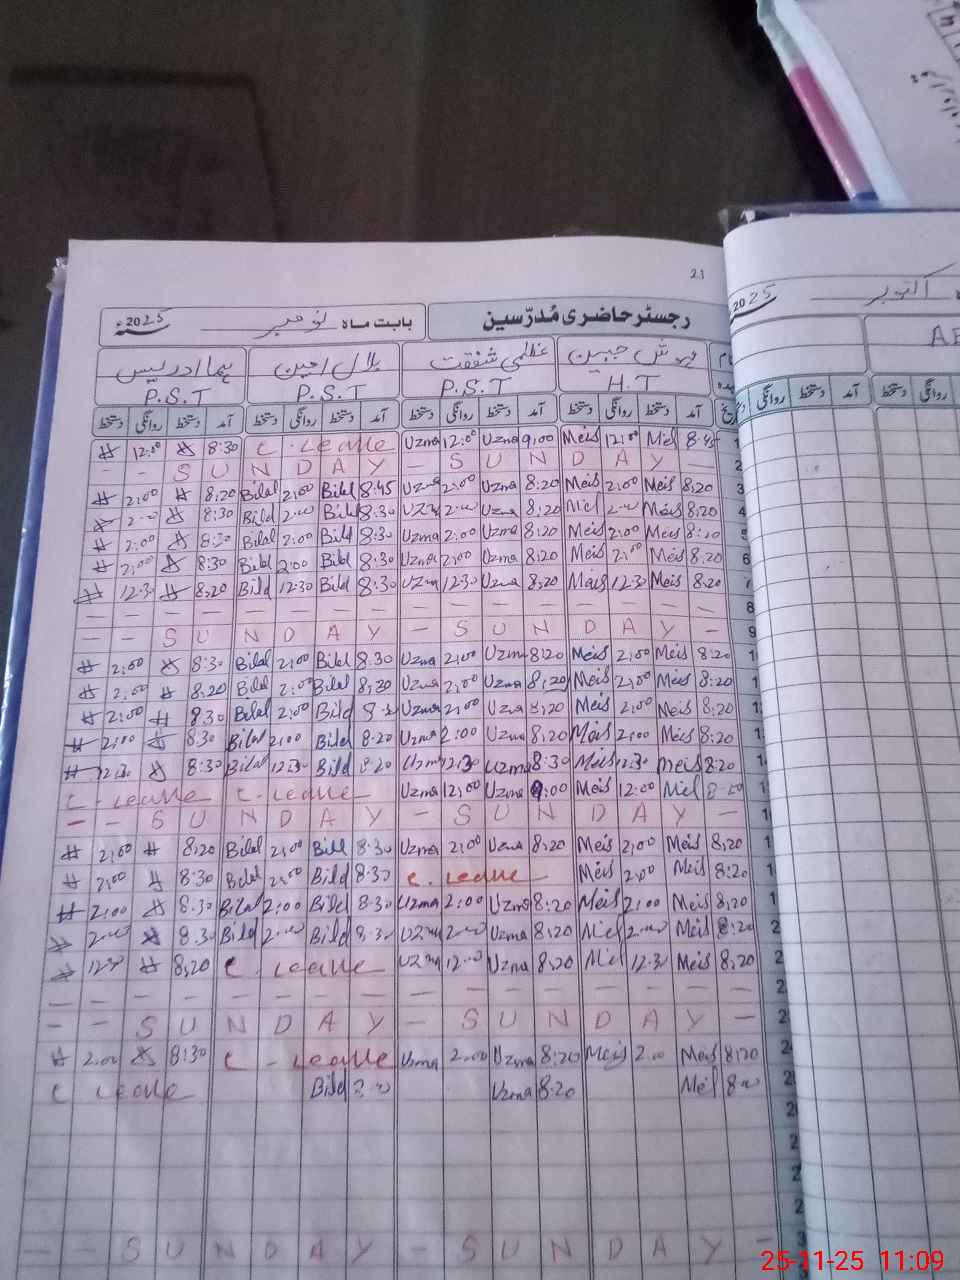 21
رجسٹر حاضری مُدرّسین
بابت ماہ نومبر 2025ء
مہوش جبین عظمیٰ شفقت بلال امین ہما ادریس
H.T P.S.T P.S.T P.S.T
آمد دستخط روانگی دستخط آمد دستخط روانگی دستخط آمد دستخط روانگی دستخط آمد دستخط روانگی دستخط
# 12:00 # 8:30 C-Leave Uzma 12:00 Uzma 9:00 Meis 12:00 Meis 8:45
- - S U N D A Y - S U N D A Y - 2
# 2:00 # 8:20 Bilal 2:00 Bilal 8:45 Uzma 2:00 Uzma 8:20 Meis 2:00 Meis 8:20 3
# 2:00 # 8:30 Bilal 2:00 Bilal 8:30 Uzma 2:00 Uzma 8:20 Meis 2:00 Meis 8:20 4
# 2:00 # 8:30 Bilal 2:00 Bilal 8:30 Uzma 2:00 Uzma 8:20 Meis 2:00 Meis 8:20 5
# 2:00 # 8:30 Bilal 2:00 Bilal 8:30 Uzma 2:00 Uzma 8:20 Meis 2:00 Meis 8:20 6
# 12:30 # 8:20 Bilal 12:30 Bilal 8:30 Uzma 12:30 Uzma 8:20 Meis 12:30 Meis 8:20
- - - - - - - - - - - - - - - - 8
- - S U N D A Y - S U N D A Y - 9
# 2:00 # 8:30 Bilal 2:00 Bilal 8:30 Uzma 2:00 Uzma 8:20 Meis 2:00 Meis 8:20
# 2:00 # 8:20 Bilal 2:00 Bilal 8:30 Uzma 2:00 Uzma 8:20 Meis 2:00 Meis 8:20
# 2:00 # 8:30 Bilal 2:00 Bilal Uzma 2:00 Uzma 8:20 Meis 2:00 Meis 8:20
# 2:00 # 8:30 Bilal 2:00 Bilal 8:20 Uzma 2:00 Uzma 8:20 Meis 2:00 Meis 8:20
# 12:30 # 8:30 Bilal 12:30 Bilal 8:20 Uzma 12:30 Uzma 8:30 Meis 12:30 Meis 8:20
C-Leave C-Leave Uzma 12:00 Uzma 9:00 Meis 12:00 Meis
- - S U N D A Y - S U N D A Y -
# 2:00 # 8:20 Bilal 2:00 Bilal 8:30 Uzma 2:00 Uzma 8:20 Meis 2:00 Meis 8:20
# 2:00 # 8:30 Bilal 2:00 Bilal 8:30 C. Leave - Meis 2:00 Meis 8:20
# 2:00 # 8:30 Bilal 2:00 Bilal 8:30 Uzma 2:00 Uzma 8:20 Meis 2:00 Meis 8:20
# 2:00 # 8:30 Bilal 2:00 Bilal 8:30 Uzma 2:00 Uzma 8:20 Meis 2:00 Meis 8:20
# 12:30 # 8:20 C. Leave Uzma 12:00 Uzma 8:20 Meis 12:30 Meis 8:20
- - - - - - - - - - - - - - - -
- - S U N D A Y - S U N D A Y -
# 2:00 # 8:30 C-Leave Uzma 2:00 Uzma 8:20 Meis 2:00 Meis 8:20
C Leave Bilal Uzma 8:20 Meis
- - S U N D A Y - S U N D A Y -
اکتوبر 2025
روانگی دستخط آمد دستخط روانگی
25-11-25 11:09